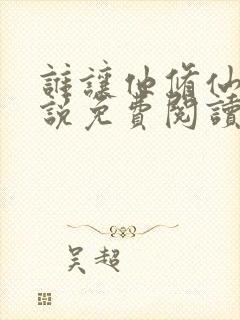 誰讓他修仙
說免費閱讀
吴超